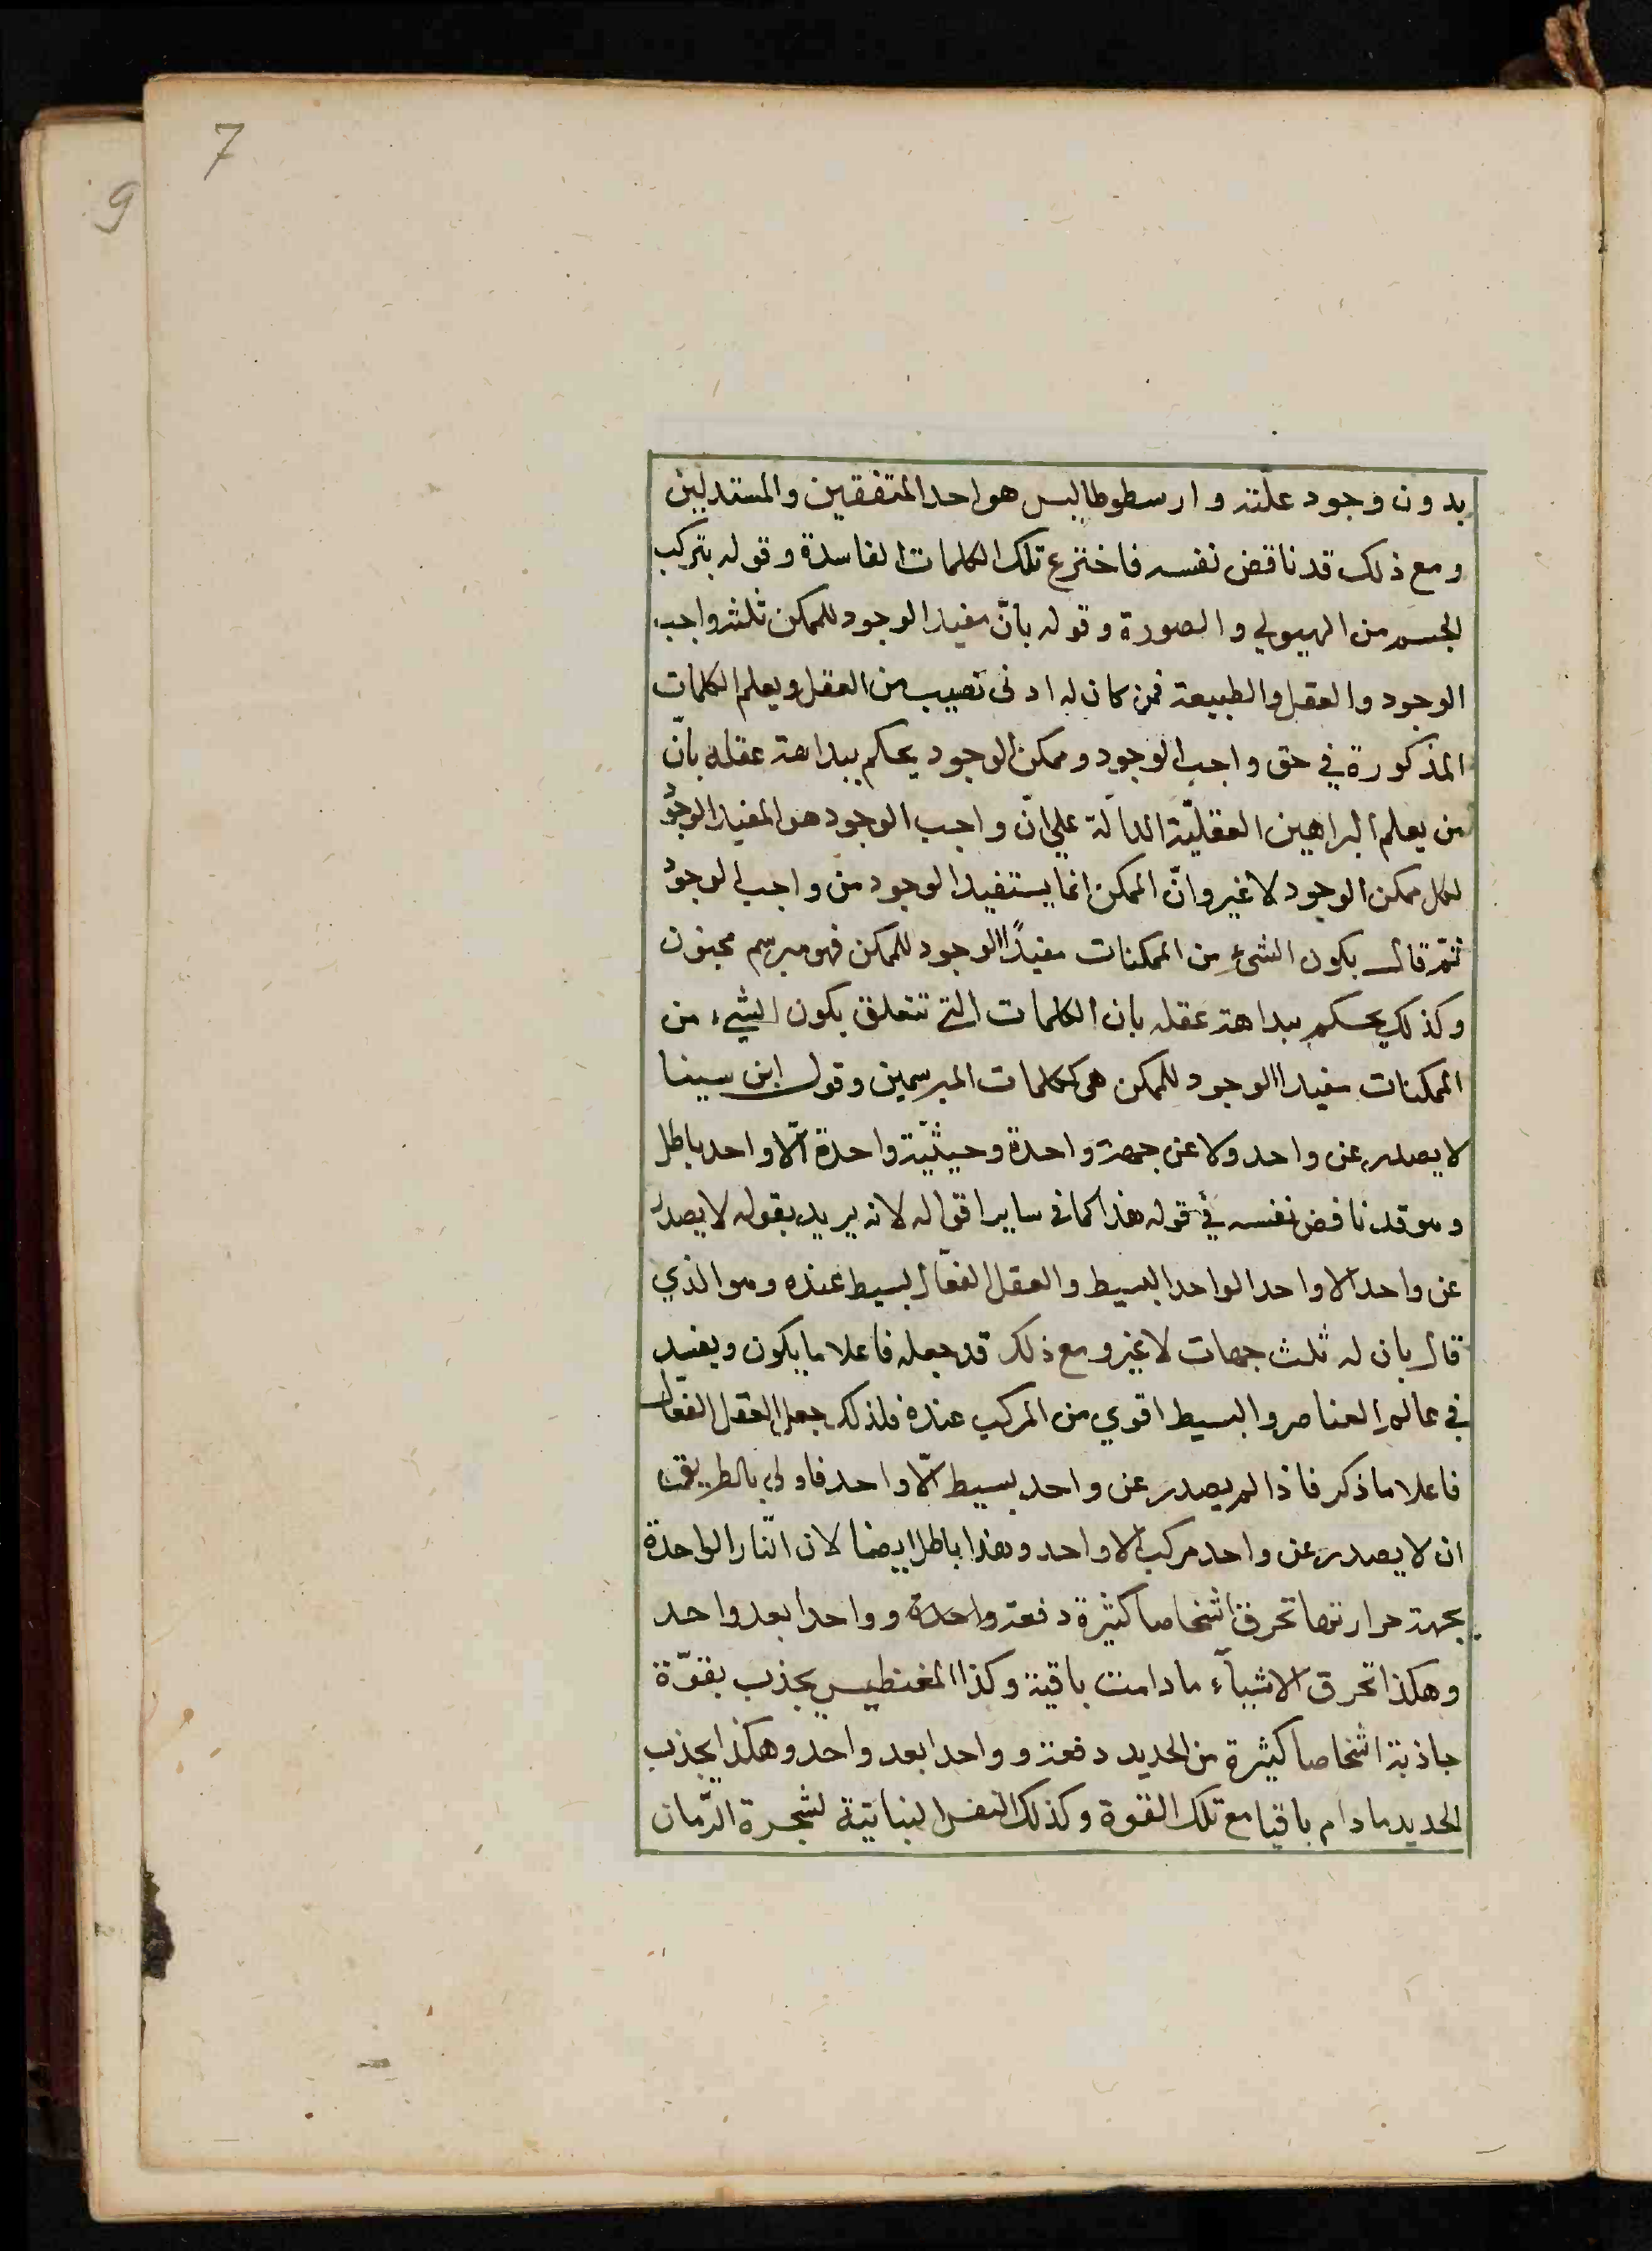 7
9
بدون وجود علّته وارسطوطاليس هو احد المتفقين والمستدلين
ومع ذلك قد ناقض نفسه فاخترع تلك الكلمات الفاسدة وقوله بتركب
الجسم من الهيولي والصورة وقوله بانّ مفيد الوجود للممكن ثلثة واجب
الوجود والعقل والطبيعة فمن كان له ادنى نصيب من العقل ويعلم الكلمات
المذكورة في حق واجب الوجود وممكن الوجود يحكم ببداهة عقله بانّ
من يعلم البراهين العقليّة الدالّة علي انّ واجب الوجود هو المفيد الوجود
لكل ممكن الوجود لا غير وانّ الممكن انما يستفيد الوجود من واجب الوجود
ثمّ قال بكون الشئ من الممكنات مفيدًا الوجود للممكن فهو مبرسم مجنون
وكذلك يحكم ببداهة عقله بان الكلمات التي تتعلق بكون الشيء من
الممكنات مفيدا الوجود للممكن هي ككلمات المبرسمين وقول ابن سينا
لا يصدر عن واحد ولا عن جهة واحدة وحيثيّة واحدة الّا واحد باطل
وهو قد ناقض نفسه في قوله هذا كما في ساير اقواله لانه يريد بقوله لا يصدر
عن واحد الا واحد الواحد البسيط والعقل الفعّال بسيط عنده وهو الذي
قال بان له ثلث جهات لا غير ومع ذلك قد جعله فاعلا ما يكون ويفسد
في عالم العناصر والبسيط اقوي من المركب عنده فلذلك جعل العقل الفعّال
فاعلا ما ذكر فاذا لم يصدر عن واحد بسيط الّا واحد فاولي بالطريق
ان لا يصدر عن واحد مركب الا واحد وهذا باطل ايضا لان النّار الواحدة
بجهة حرارتها تحرق اشخاصا كثيرة دفعة واحدة وواحدا بعد واحد
وهكذا تحرق الاشيآء ما دامت باقية وكذا المغنطيس يجذب بقوّة
جاذبة اشخاصا كثيرة من الحديد دفعة وواحدا بعد واحد وهكذا يجذب
الحديد ما دام باقيا مع تلك القوة وكذلك النفس النباتية لشجرة الرّمان